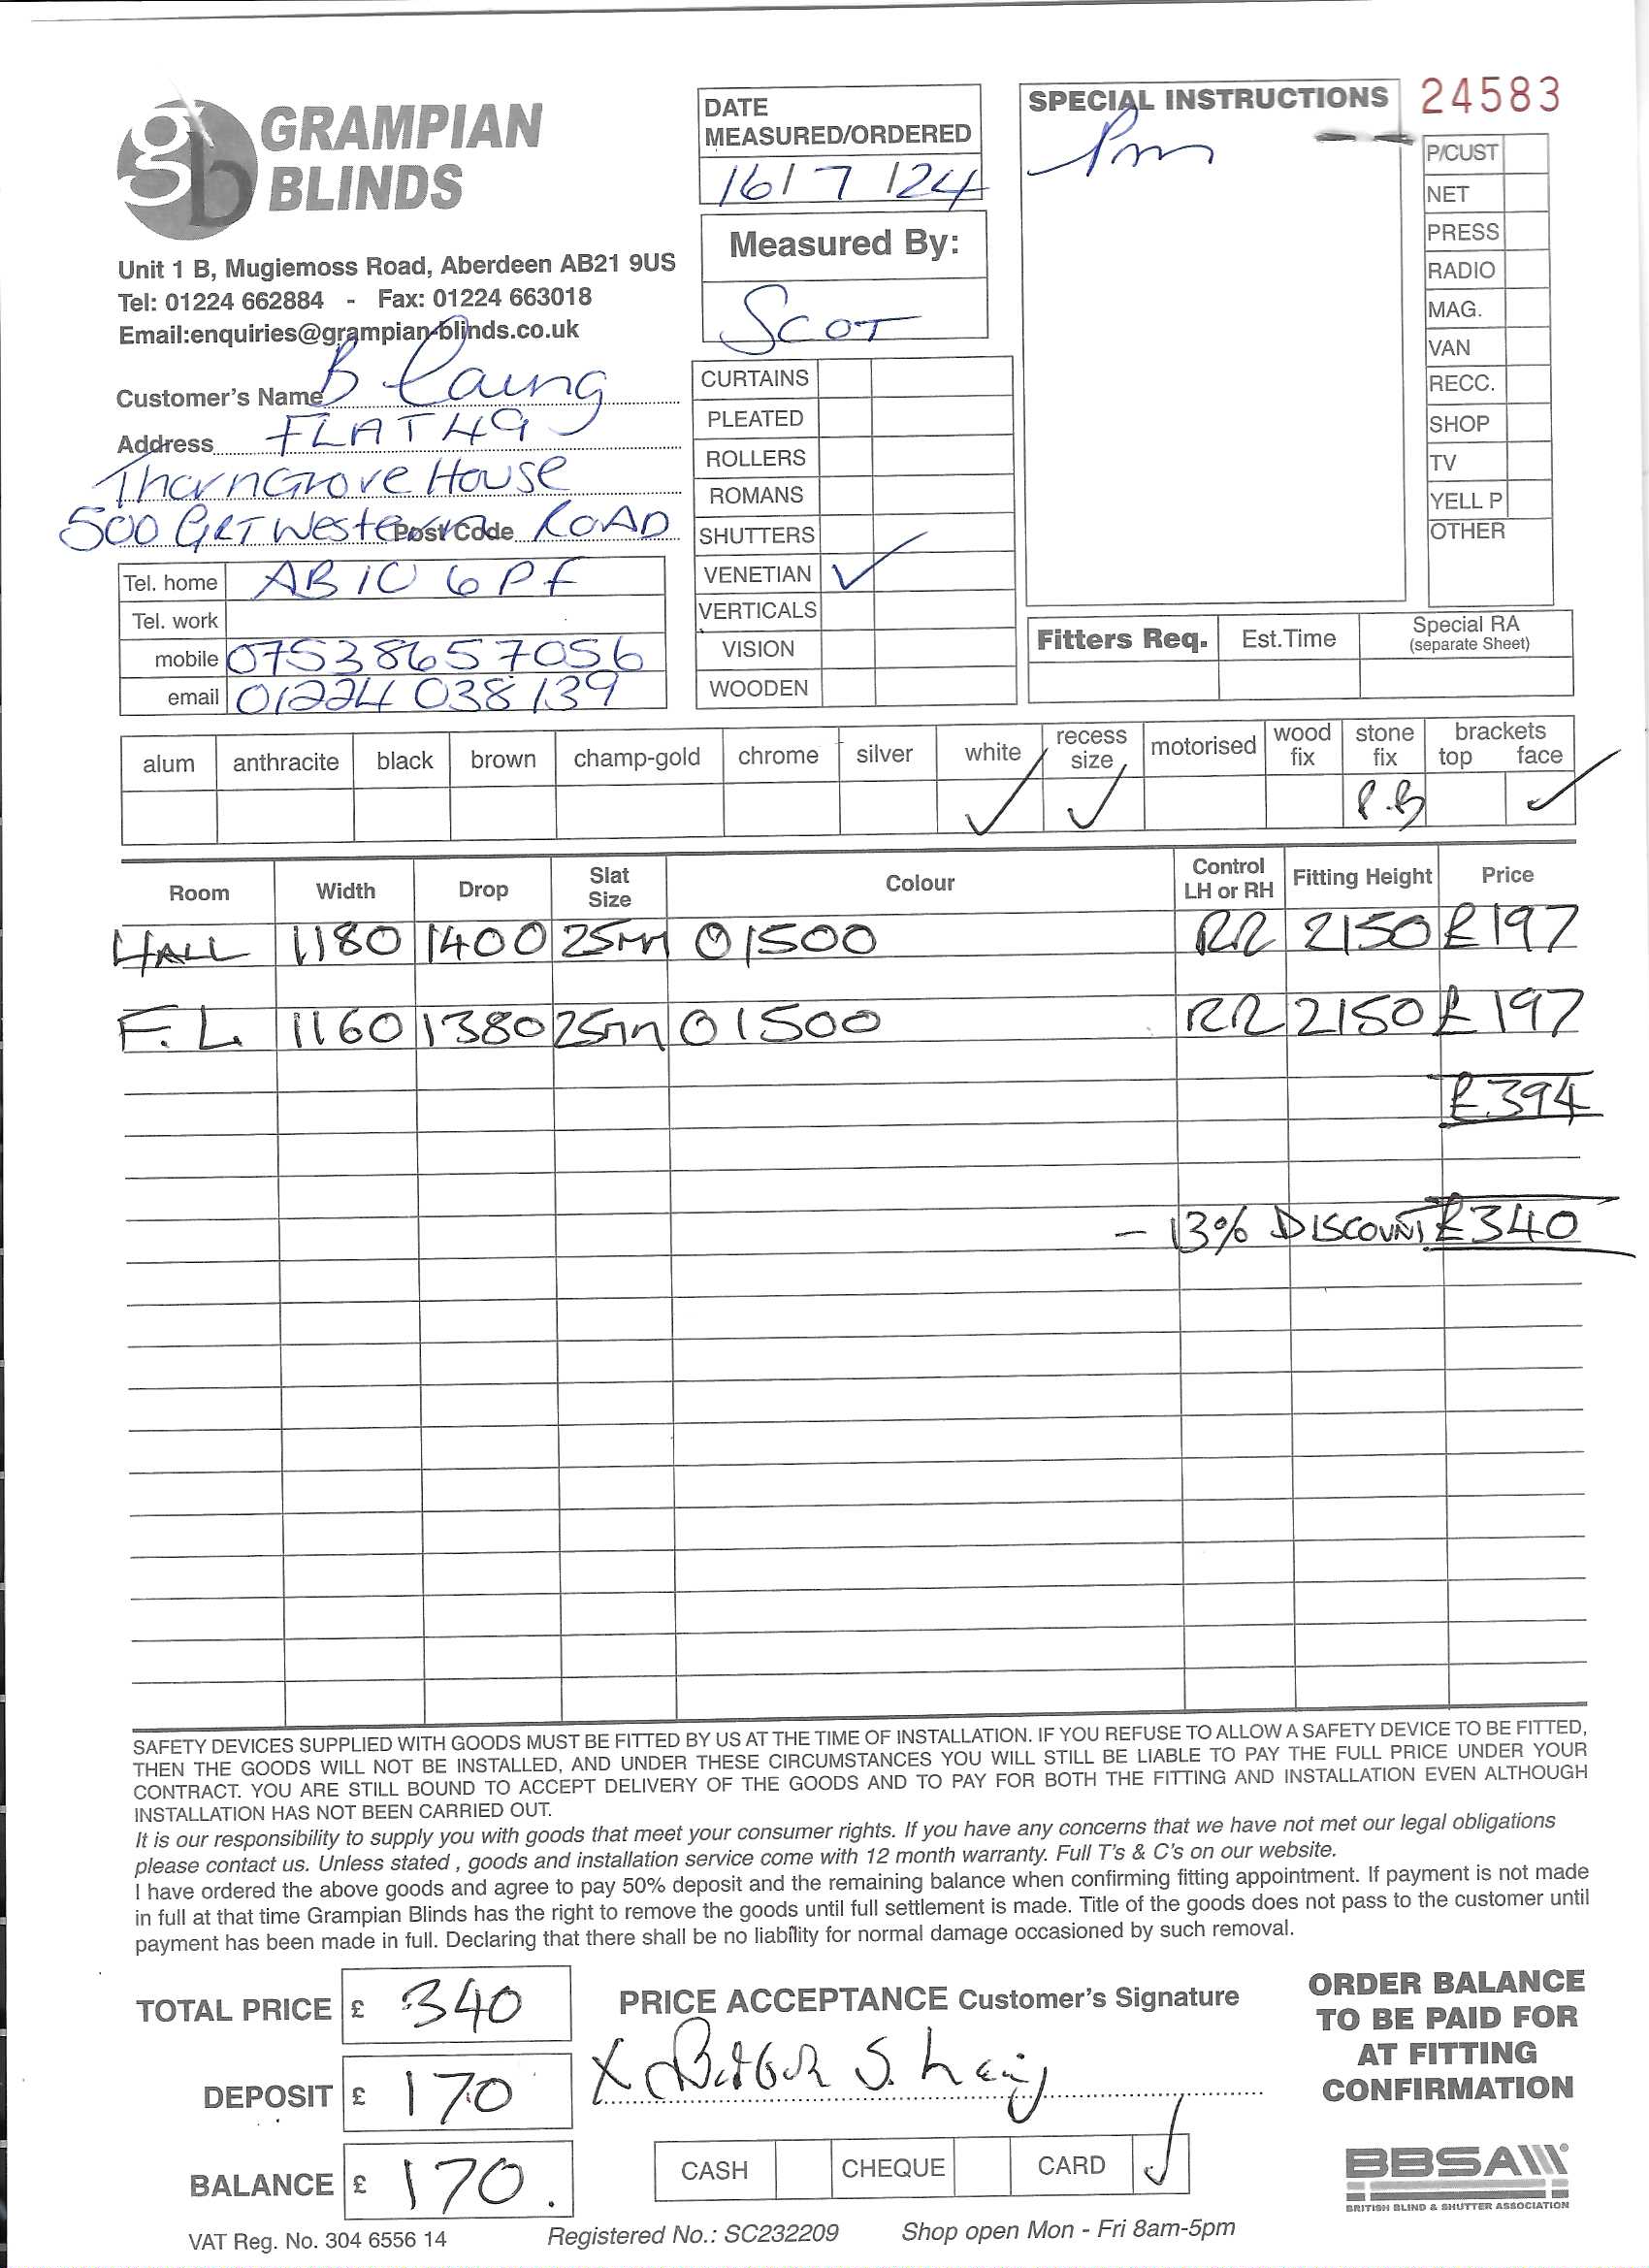 GRAMPIAN
BLINDS
Unit 1 B, Mugiemoss Road, Aberdeen AB21 9US
Tel: 01224 662884 - Fax: 01224 663018
Email:enquiries@grampian-blinds.co.uk
Customer's Name B Laing
Address FLAT 49
ThornGrove House
500 GRT Western Post Code ROAD
Tel. home AB10 6PF
Tel. work
mobile 07538657056
email 01224 038139
DATE
MEASURED/ORDERED
16/7/24
Measured By:
SCOT
CURTAINS
PLEATED
ROLLERS
ROMANS
SHUTTERS
VENETIAN ✓
VERTICALS
VISION
WOODEN
SPECIAL INSTRUCTIONS
Pm
24583
P/CUST
NET
PRESS
RADIO
MAG.
VAN
RECC.
SHOP
TV
YELL P
OTHER
Fitters Req. Est.Time Special RA
(separate Sheet)
alum anthracite black brown champ-gold chrome silver white recess size motorised wood fix stone fix brackets top face
✓ ✓ P.B ✓
Room Width Drop Slat Size Colour Control LH or RH Fitting Height Price
HALL 1180 1400 25mm 01500 RR 2150 £197
F.L. 1160 1380 25mm 01500 RR 2150 £197
£394
- 13% DISCOUNT £340
SAFETY DEVICES SUPPLIED WITH GOODS MUST BE FITTED BY US AT THE TIME OF INSTALLATION. IF YOU REFUSE TO ALLOW A SAFETY DEVICE TO BE FITTED,
THEN THE GOODS WILL NOT BE INSTALLED, AND UNDER THESE CIRCUMSTANCES YOU WILL STILL BE LIABLE TO PAY THE FULL PRICE UNDER YOUR
CONTRACT. YOU ARE STILL BOUND TO ACCEPT DELIVERY OF THE GOODS AND TO PAY FOR BOTH THE FITTING AND INSTALLATION EVEN ALTHOUGH
INSTALLATION HAS NOT BEEN CARRIED OUT.
It is our responsibility to supply you with goods that meet your consumer rights. If you have any concerns that we have not met our legal obligations
please contact us. Unless stated , goods and installation service come with 12 month warranty. Full T's & C's on our website.
I have ordered the above goods and agree to pay 50% deposit and the remaining balance when confirming fitting appointment. If payment is not made
in full at that time Grampian Blinds has the right to remove the goods until full settlement is made. Title of the goods does not pass to the customer until
payment has been made in full. Declaring that there shall be no liability for normal damage occasioned by such removal.
TOTAL PRICE £ 340
DEPOSIT £ 170
BALANCE £ 170.
PRICE ACCEPTANCE Customer's Signature
X S. Laing
CASH CHEQUE CARD ✓
ORDER BALANCE
TO BE PAID FOR
AT FITTING
CONFIRMATION
BBSA
BRITISH BLIND & SHUTTER ASSOCIATION
VAT Reg. No. 304 6556 14 Registered No.: SC232209 Shop open Mon - Fri 8am-5pm